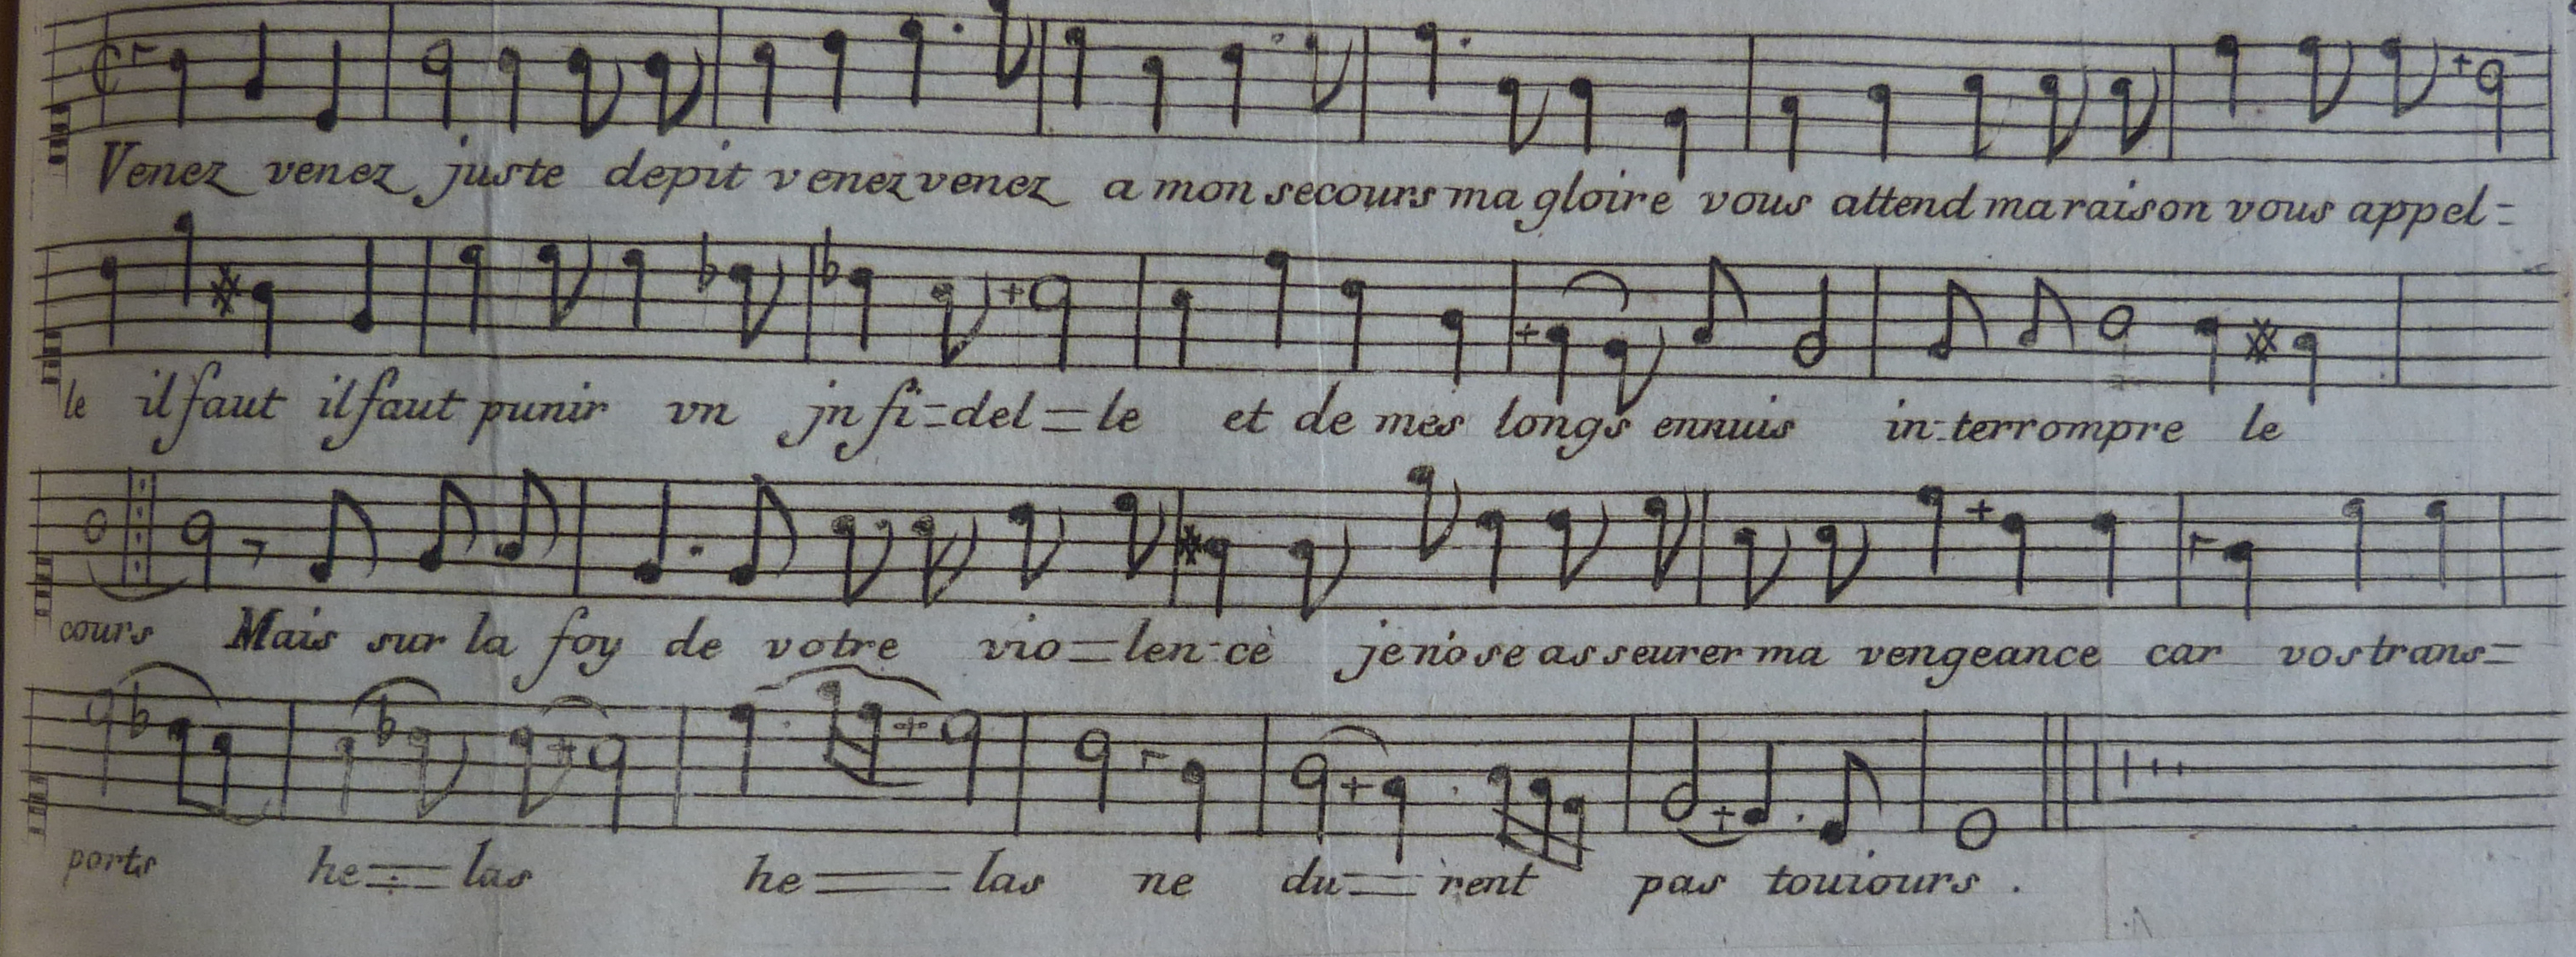 Venez venez juste depit venez venez a mon secours ma gloire vous attend ma raison vous appel=
le il faut il faut punir vn jn fi=del=le et de mes longs ennuis in-terrompre le
cours Mais sur la foy de votre vio=len-cè je n'ose asseurer ma vengeance car vos trans=
ports he=las he=las ne du=rent pas touiours .